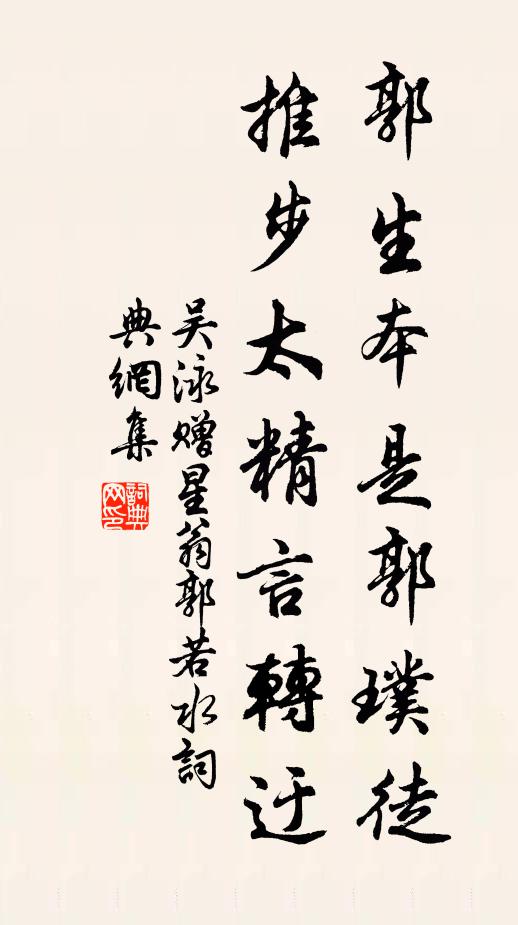 郭生本是郭璞徒
推步太精言轉迂
吴泳赠星翁郭若水詞
典網集
詞典
网印